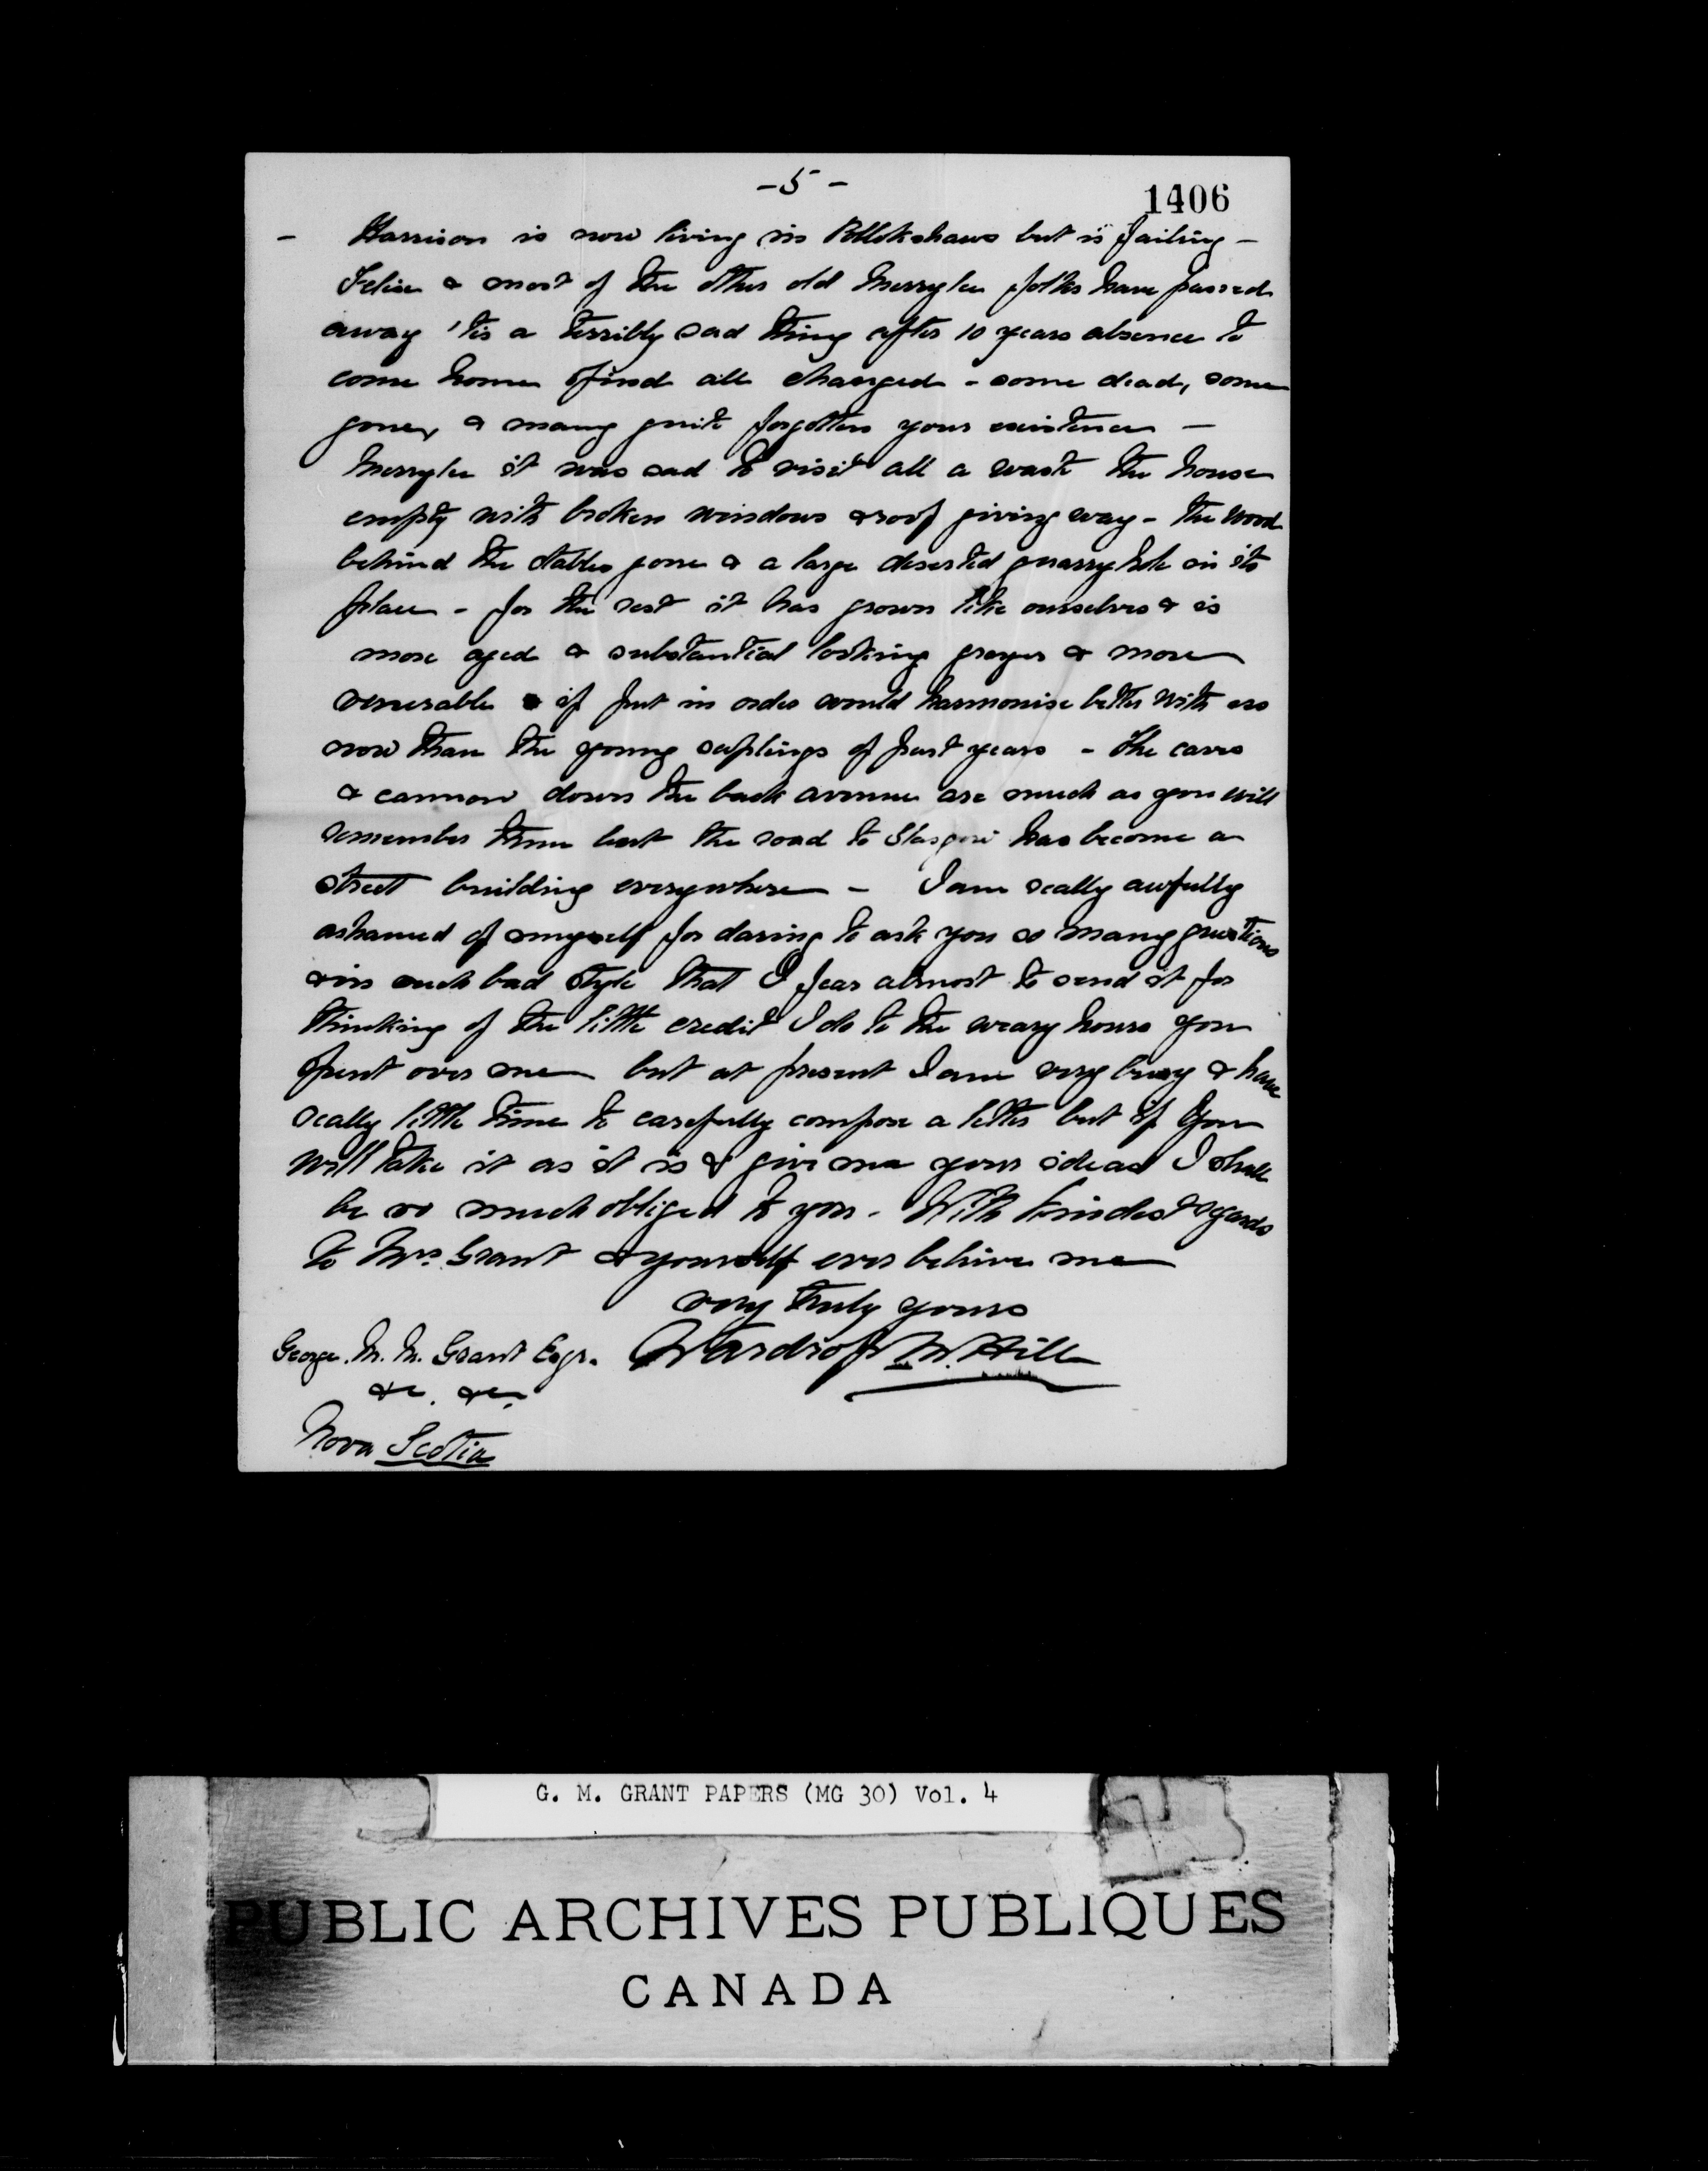 - 5 -
1406
- Harrison is now living in Pollokshaws but is failing -
& most of the other old Merrylee folks have passed
away 'tis a terribly sad thing after 10 years absence to
come home & find all changed - some dead, some
gone, & many quite forgotten your existence -
Merrylee it was sad to visit all a waste the house
empty with broken windows & roof giving way - the wood
behind the stables gone & a large deserted quarry hole in its
place - for the rest it has grown like ourselves & is
more aged & substantial looking greyer & more
venerable & if put in order would harmonise better with us
now than the young saplings of past years - The caves
& cannon down the back avenue are much as you will
remember them but the road to Glasgow has become a
street building everywhere - I am really awfully
ashamed of myself for daring to ask you so many questions
& in such bad style that I fear almost to send it for
thinking of the little credit I do to the weary hours you
spent over me but at present I am very busy & have
really little time to carefully compose a letter but if you
will take it as it is & give me your ideas I shall
be so much obliged to you - With kindest regards
to Mrs. Grant & yourself ever believe me
very truly yours
George. M. M. Grant Esqr. Wardrop M. Hill
&c. &c.
Nova Scotia
G. M. GRANT PAPERS (MG 30) Vol. 4
PUBLIC ARCHIVES PUBLIQUES
CANADA